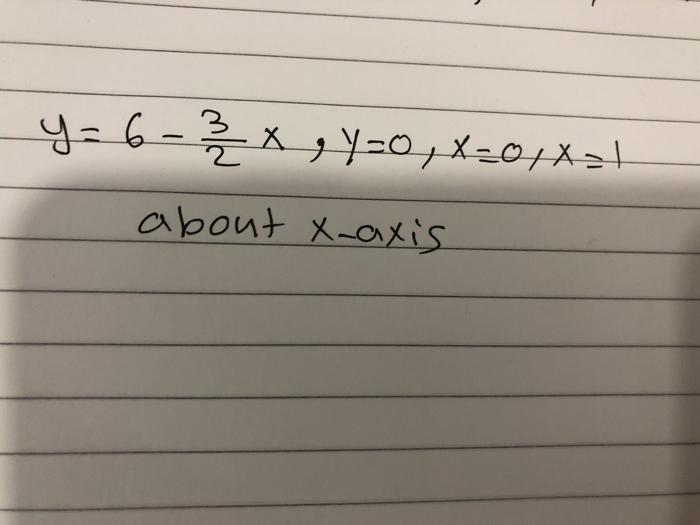 y = 6 - 3/2 x , y=0, x=0, x=1
about x-axis